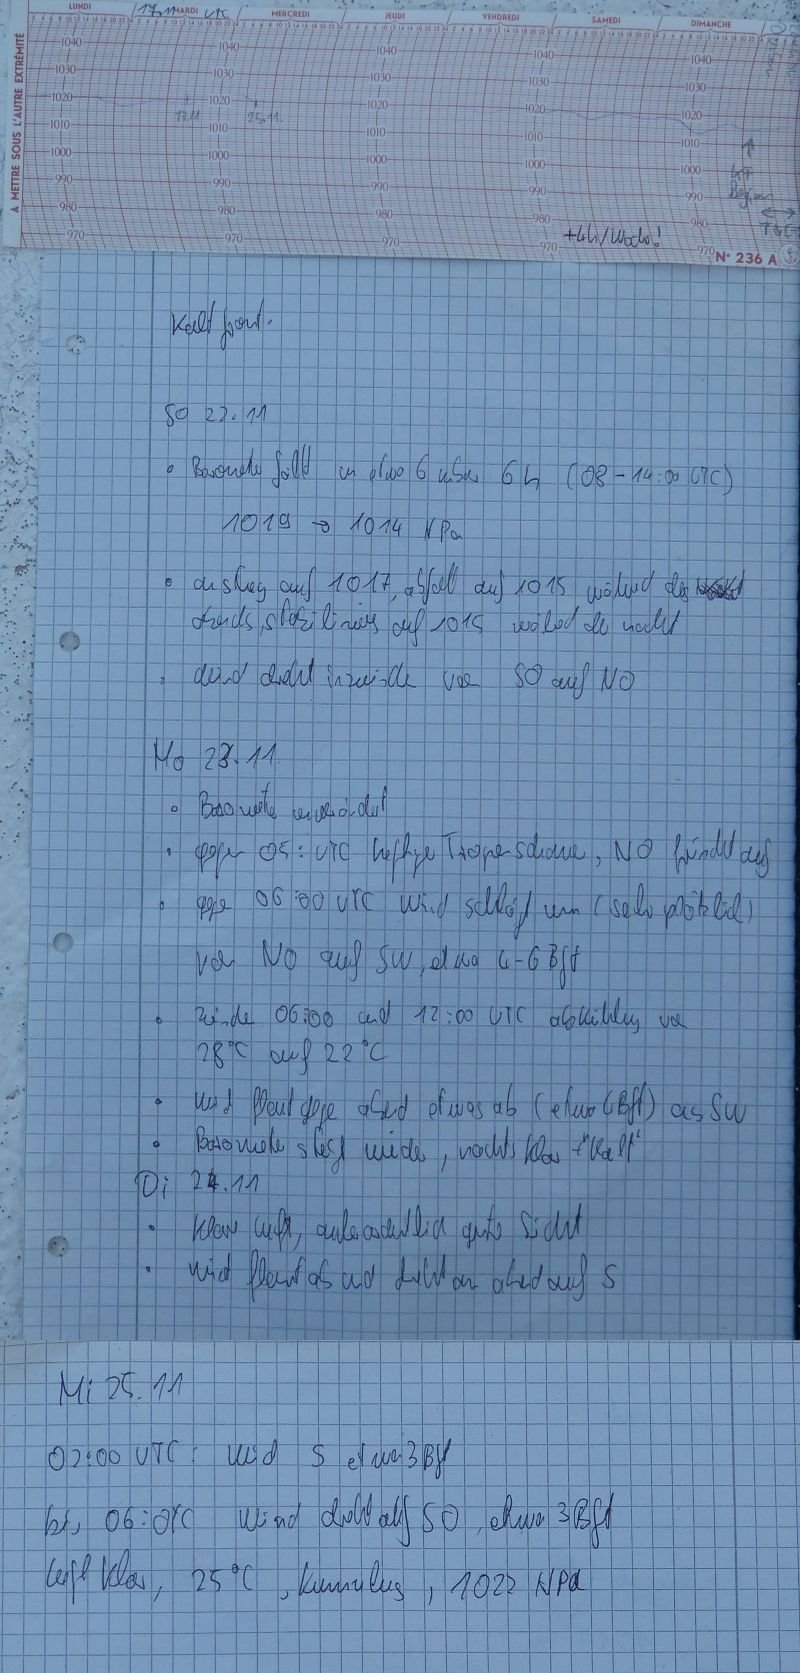 LUNDI MARDI MERCREDI JEUDI VENDREDI SAMEDI DIMANCHE
17.11 UTC
A METTRE SOUS L'AUTRE EXTRÉMITÉ
1040 1040 1040 1040 1040
1030 1030 1030 1030 1030
1020 1020 1020 1020 1020
17.11 25.11.
1010 1010 1010 1010 1010
1000 1000 1000 1000 1000
990 990 990 990 990
980 980 980 980 980
970 970 970 970 970
+4h/Woche!
N° 236 A
Kaltfront.
So 22.11
• Barometer fällt in etwa 6h (08-14:00 UTC)
1019 → 1014 hPa
• Anstieg auf 1017, abfall auf 1015 während des
abends, stabilisiert auf 1015 während der nacht
• Wind dreht inzwischen von SO auf NO
Mo 23.11
• Barometer unverändert
• gegen 05: UTC heftige Tropenschauer, NO frischt auf
• gegen 06:00 UTC Wind schlägt um (sehr plötzlich)
von NO auf SW, etwa 4-6 Bft
• zwischen 06:00 und 12:00 UTC abkühlung von
28°C auf 22°C
• wind flaut gegen abend etwas ab (etwa 4 Bft) aus SW
• Barometer steigt wieder, nachts klar + "kalt"
Di 24.11
• klare Luft, außerordentlich gute Sicht
• wind flaut ab und dreht am abend auf S
Mi 25.11
02:00 UTC: wind S etwa 3 Bft
bis 06: UTC Wind dreht auf SO, etwa 3 Bft
Luft klar, 25°C, kumulus, 1022 hPa